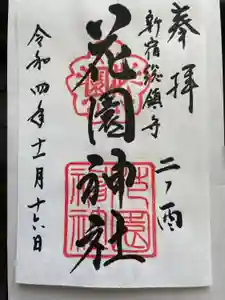 奉拝
新宿総鎮守
二ノ酉
花園神社
令和四年十一月十六日